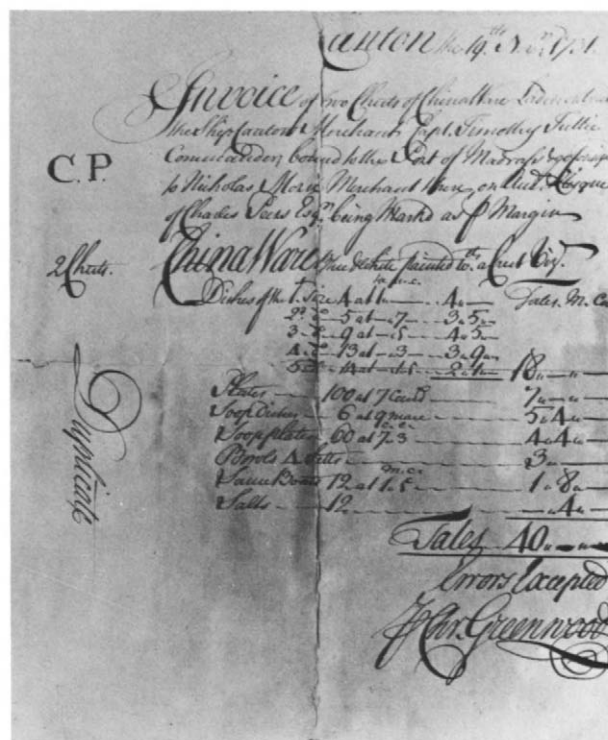 Canton the 19th Novr. 1731.
Invoice of two Chests of China Ware Laden on board
the Ship Canton Merchant Capt. Timothy Tullie
Commander, bound to the Port of Madrass & consign
to Nicholas Morse Merchant there, on Acct. & Risque
of Charles Peers Esqr. being Markd as p Margin
C.P.
2 Chests.
China Ware Blue & White painted wth. a Crest Viz.
Tales. M. C.
m. c.
Dishes of the 1st. Size 4 at 1 4
2d. do 5 at 7 3 5
3 do 9 at 5 4 5
4 do 13 at 3 3 9
5 do 14 at 1.5 2 1 18
Plates 100 at 7 Cand 7
Soop Dishes 6 at 9 mace 5 4
Soop plates 60 at 7.3 4 4
Bowls 4 Setts 3
m. c.
Sauce Boats 12 at 1.5 1 8
Salts 12 4
Tales 40
Errors Excepted
Chr. Greenwood
Duplicate